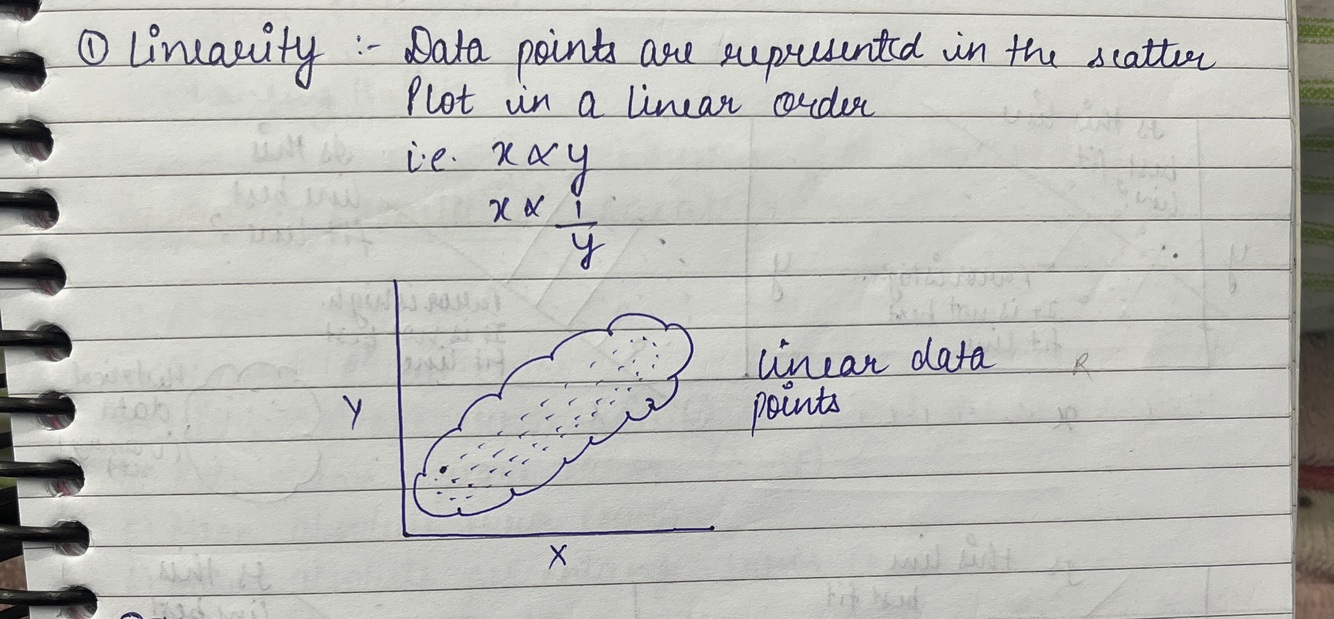 ① Linearity :- Data points are represented in the scatter
Plot in a linear order
i.e. x ∝ y
x ∝ 1/y
Y
linear data
points
X